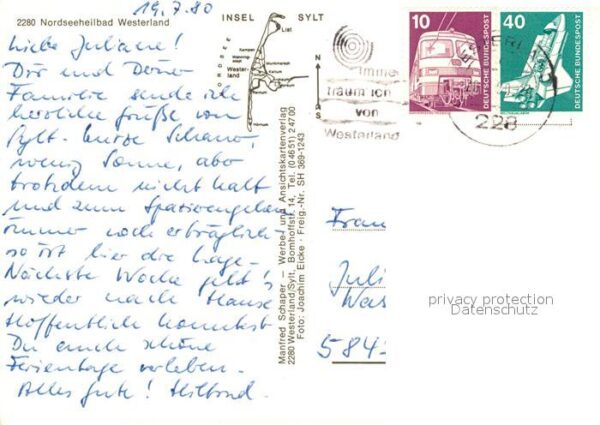 19.7.80
2280 Nordseeheilbad Westerland
INSEL SYLT
NORDSEE
List
Kampen
Westerland
Munkmarsch
Keitum
Hörnum
N
S
Liebe Juliane!
Dir und Deiner
Familie sende ich
herzliche Grüße von
Sylt. Kurze Schauer,
wenig Sonne, aber
trotzdem nicht kalt
und zum Spazierengehen
immer noch erträglich -
so ist hier die Lage.
Nächste Woche geht's
wieder nach Hause.
Hoffentlich konntest
Du auch schöne
Ferientage verleben.
Alles Gute!
Manfred Schaper – Werbe- und Ansichtskartenverlag
2280 Westerland/Sylt, Bomhoffstr. 14, Tel. (04651) 24700
Foto: Joachim Eicke · Freig.-Nr. SH 369-1243
10
DEUTSCHE BUNDESPOST
40
DEUTSCHE BUNDESPOST
Imme
träum ich
von
Westerland
228
Frau
Juli
Was
584
privacy protection
Datenschutz